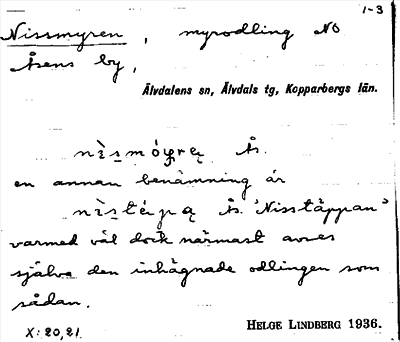 1-3
Nissmyren, myrodling NO
Åsens by,
Älvdalens sn, Älvdals tg, Kopparbergs län.
Ås.
en annan benämning är
Ås. "Nisstäppan"
varmed väl dock närmast avses
själva den inhägnade odlingen som
sådan.
X: 20,21.
HELGE LINDBERG 1936.